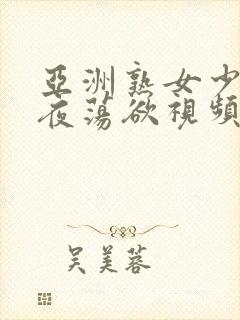 亞洲熟女少
夜蕩欲視頻
吴美蓉